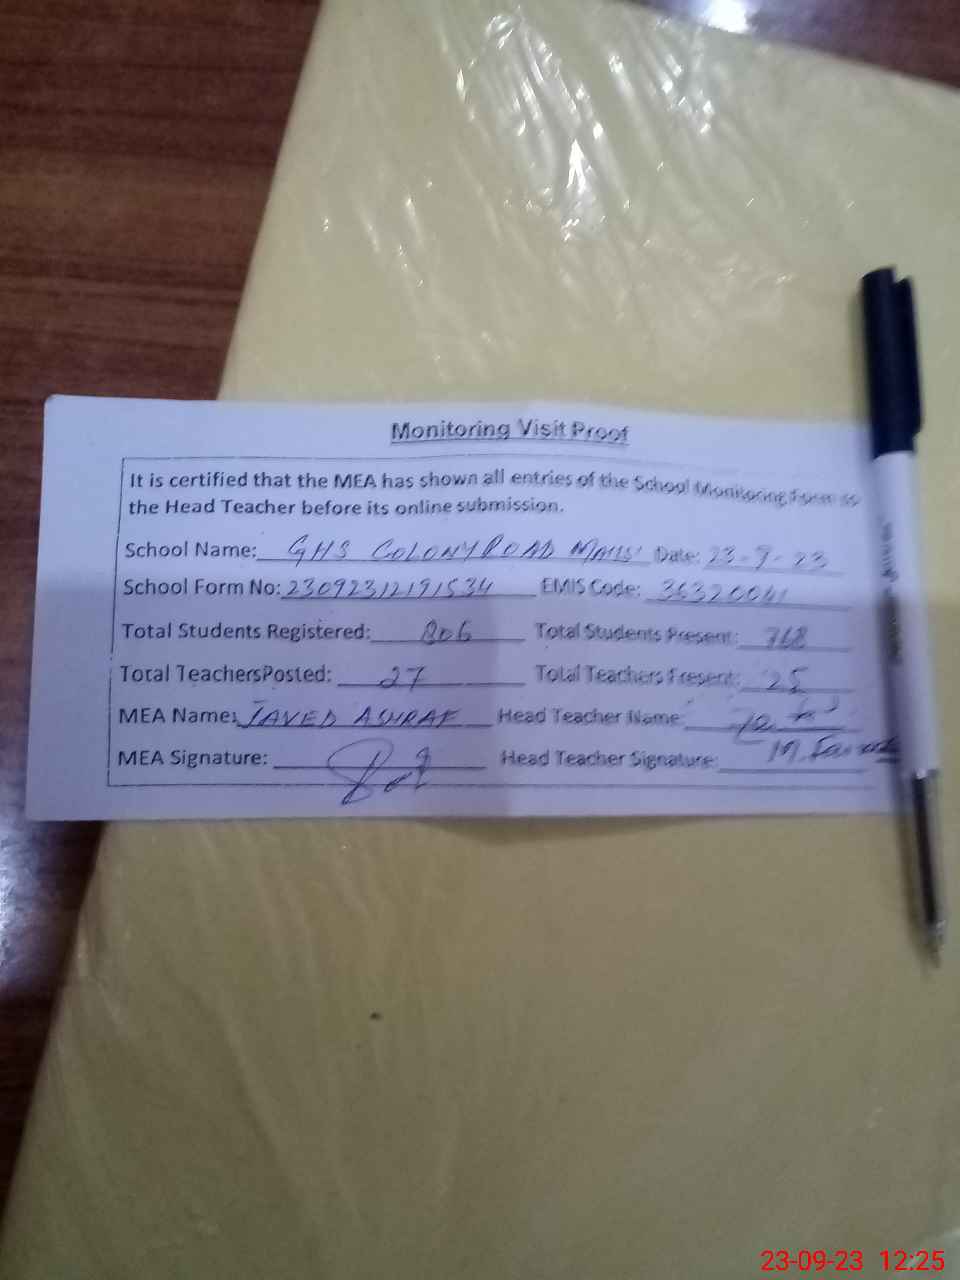 Monitoring Visit Proof
It is certified that the MEA has shown all entries of the School Monitoring Form to
the Head Teacher before its online submission.
School Name: GHS COLONY ROAD MAILSI Date: 23-9-23
School Form No: 23092312191534 EMIS Code: 36320041
Total Students Registered: 806 Total Students Present: 768
Total TeachersPosted: 27 Total Teachers Present: 25
MEA Name: JAVED ASHRAF Head Teacher Name:
M.
MEA Signature: Head Teacher Signature:
23-09-23 12:25